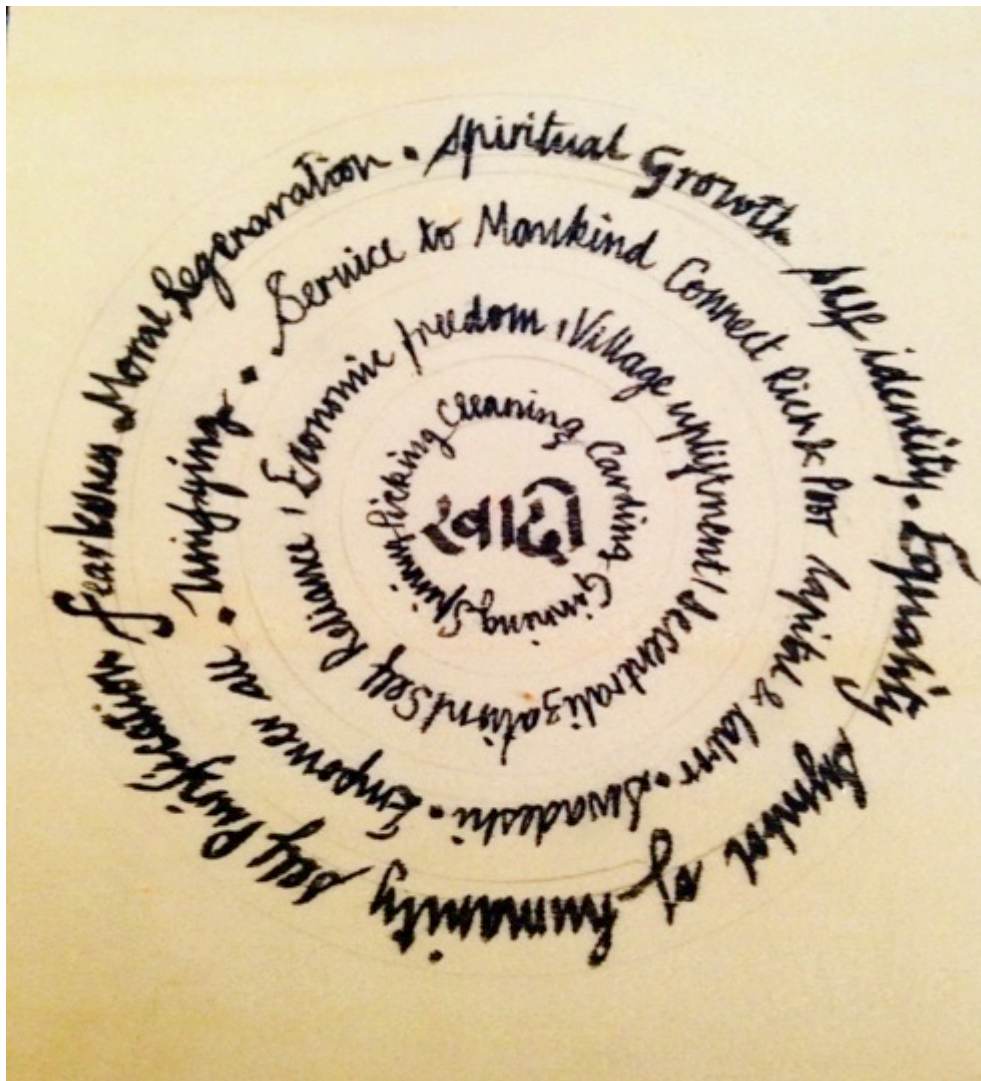 Spiritual Growth self identity • Equality Symbol of humanity self Purification fearlessness Moral Regenaration •
Service to Mankind Connect Rich & Poor Capital & labour • Swadeshi • Empower all • Unifying •
Economic freedom, Village upliftment / decentralization / Self Reliance,
Picking Cleaning Carding Ginning Spinning
खादी